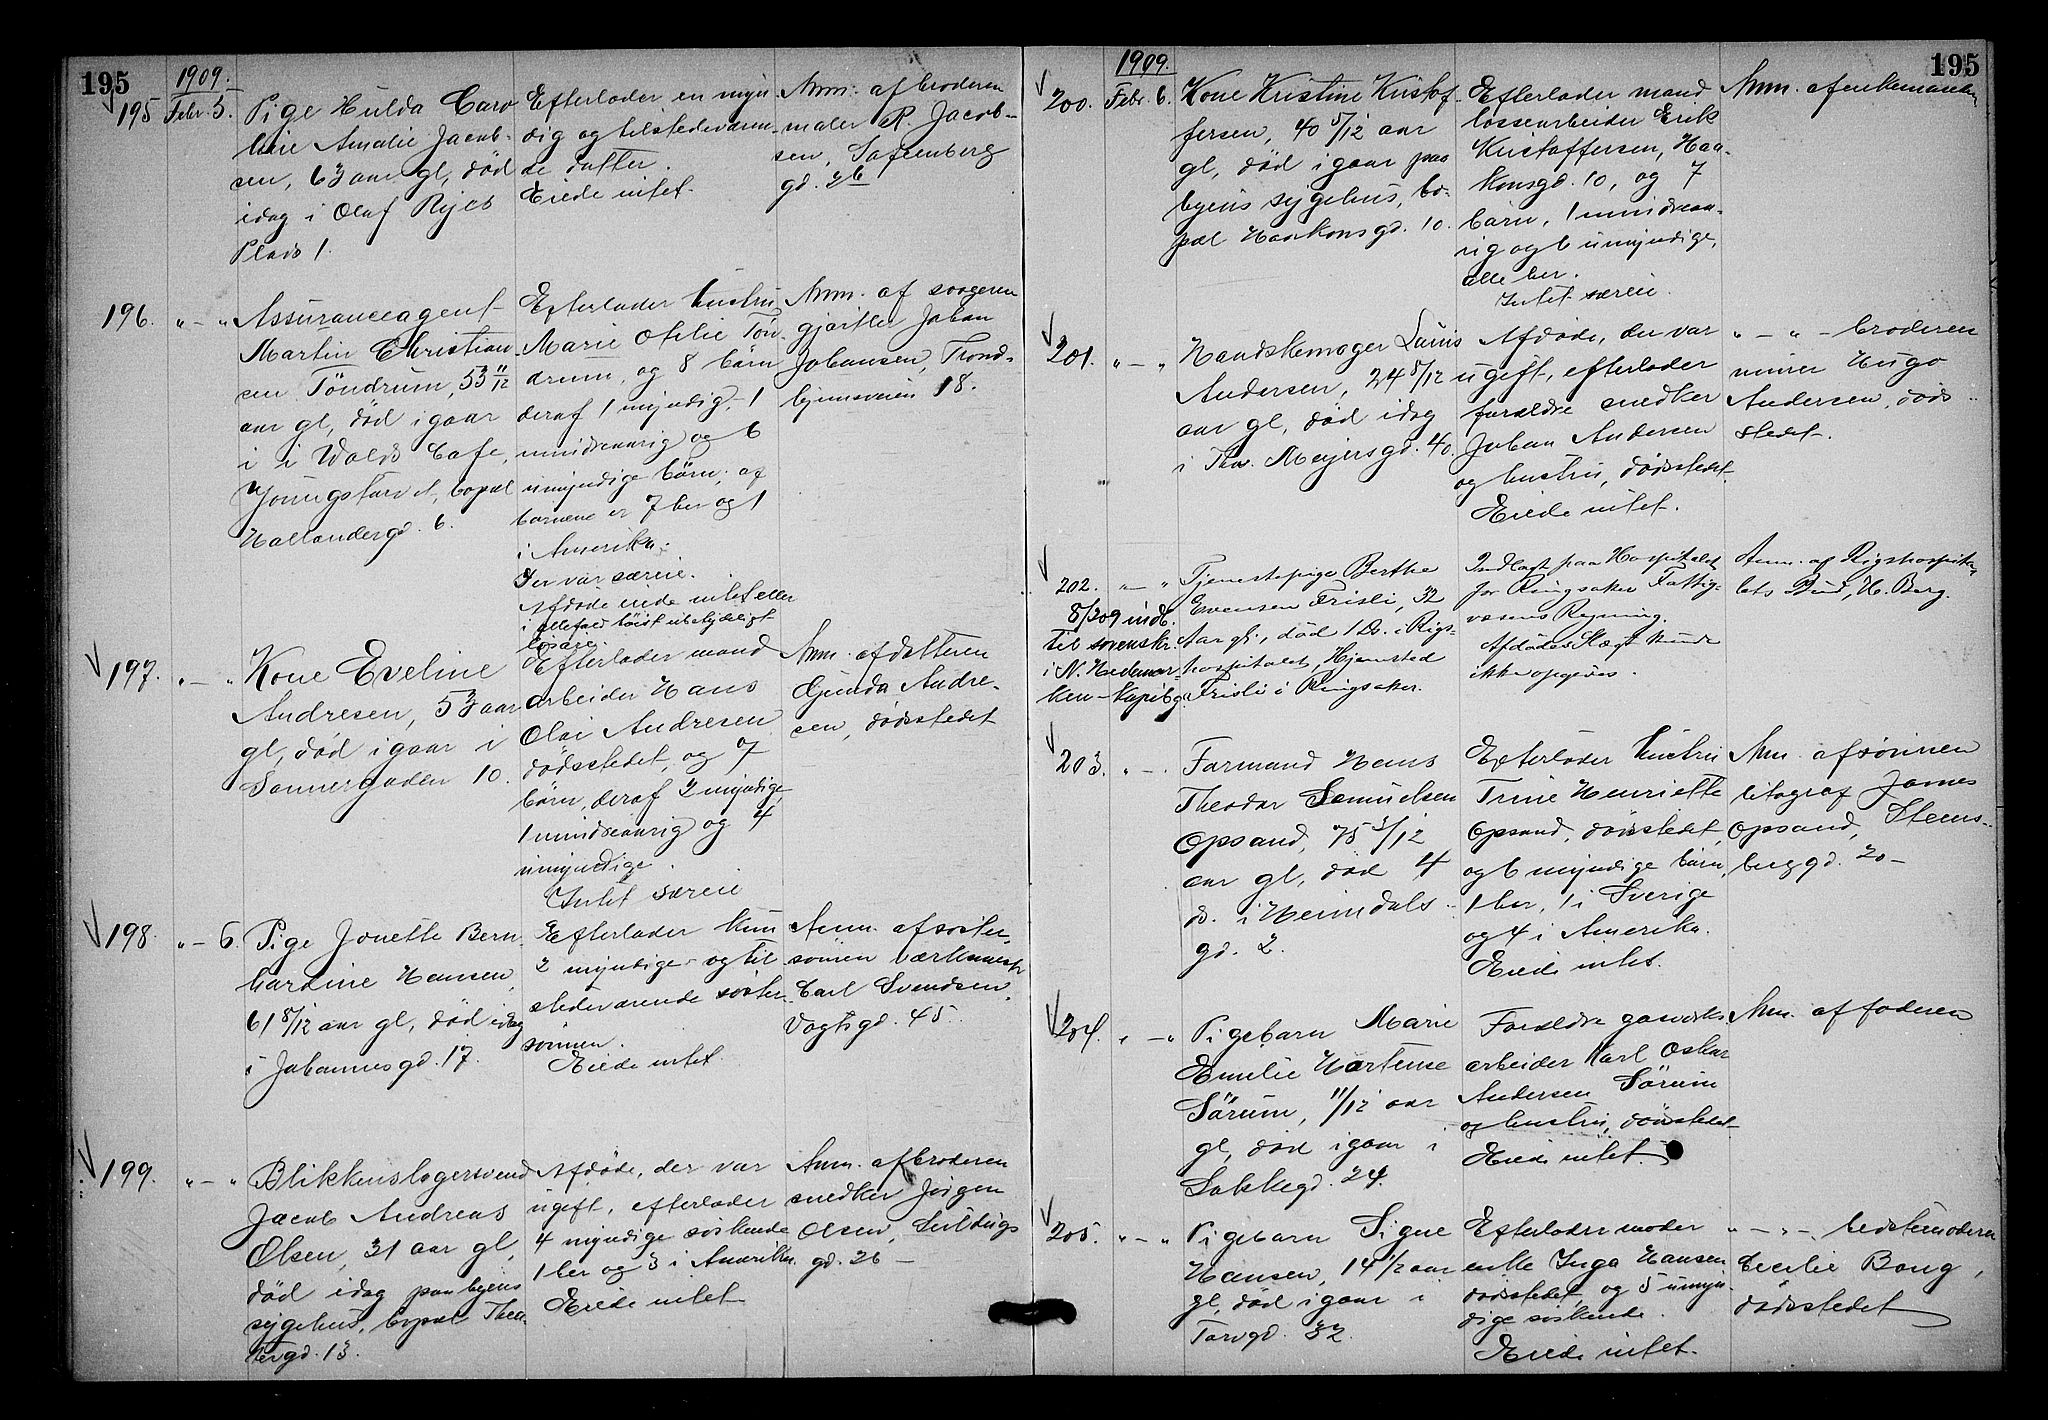 195
1909.
195 Febr. 5. Pige Hulda Caro
line Amalie Jacob-
sen, 63 aar gl, död
idag i Olaf Ryes
Plads 1.
Efterlader en myn
dig og tilstedeværen-
de datter.
Eiede intet.
Anm. af broderen
maler R. Jacob-
sen, Sofienberg
gd. 26
196. " - " Assuranceagent
Martin Christian
sen Töndrum, 53 11/12
aar gl, död igaar
i Cafe,
Youngstorvet, bopæl
Hallandergd. 6.
Efterlader hustru
Marie Ofelie Tön-
drum, og 8 börn
deraf 1 myndig, 1
mindreaarig og 6
umyndige börn; af
börnene er 7 her og 1
i Amerika.
Der var særeie.
Afdöde eiede intet eller
i allefald höist ubetydeligt
lösöre.
Anm. af svogeren
gjörtler Johan
Johansen, Trond-
hjemsveien 18.
197. " - " Kone Eveline
Andresen, 53 aar
gl, död igaar i
Sannergaden 10.
Efterlader mand
arbeider Hans
Olai Andresen
dödsstedet, og 7
börn, deraf 2 myndige
1 mindreaarig og 4
umyndige.
Intet særeie
Anm. af datteren
Gunda Andre-
sen, dödsstedet
198. " - 6. Pige Jonette Bern
hardine Hansen,
61 8/12 aar gl, död idag
i Johannesgd. 17.
Efterlader kun
2 myndige og til
stedeværende söster-
sönnen.
Eiede intet.
Anm. af söster-
sönnen værkmester
Carl Svendsen,
Vogtsgd. 45
199. " - " Blikkenslagersvend
Jacob Andreas
Olsen, 31 aar gl,
död idag paa byens
sygehus, bopæl Thea-
tergd. 13.
Afdöde, der var
ugift, efterlader
4 myndige söskende
1 her og 3 i Amerika.
Eiede intet
Anm. af broderen
snedker Jörgen
Olsen,
gd. 26 -
195
1909.
200. Febr. 6. Kone Kristine Kristof-
fersen, 40 5/12 aar
gl, död igaar paa
byens sygehus, bo-
pæl Haakonsgd. 10.
Efterlader mand
lossearbeider Erik
Kristoffersen, Haa-
konsgd. 10, og 7
börn, 1 mindreaa-
rig og 6 umyndige,
alle her.
Intet særeie.
Anm. af enkemanden
201. " - " Handskemager Lauis
Andersen, 24 8/12
aar gl, död idag
i Thv. Meyersgd. 40.
Afdöde, der var
ugift, efterlader
forældre snedker
Johan Andersen
og hustru, dödsstedet
Eiede intet.
" - " - broderen
murer Hugo
Andersen, döds-
stedet.
202. " - " Tjenestepige Berthe
Evensen Frisli, 32
Aar gl., död 1 Ds. i Rigs-
hospitalet, Hjemsted
Frisli i Ringsaker.
8/2 09 indb.
til sorenskr.
i N. Hedemar-
ken - kopibg
Indlagt paa Hospitalet
for Ringsaker Fattig-
væsens Regning.
Afdödes Slægt kunde
ikke opgives.
Anm. af Rigshospita-
lets Bud, H. Berg.
203. " - " Formand Hans
Theodor Samuelsen
Opsand, 75 3/12
aar gl, död 4
ds. i Heimdals-
gd. 2.
Efterlader hustru
Trine Henriette
Opsand, dödsstedet
og 6 myndige börn,
1 her, 1 i Sverige
og 4 i Amerika.
Eiede intet.
Anm. af sönnen
litograf James
Opsand, Stens-
berggd. 20 -
204. " - " Pigebarn Marie
Emilie Hortense
Sörum, 11/12 aar
gl, död igaar i
Sakkegd. 24.
Forældre gasverks
arbeider Karl Oskar
Andersen Sörum
og hustru, dödsstedet
Eiede intet.
Anm. af faderen
205. " - " Pigebarn Signe
Hansen, 14 1/2 aar
gl, död igaar i
Torvgd. 32.
Efterlader moder
enke Inga Hansen
dödsstedet, og 5 umyn-
dige söskende.
Eiede intet.
" - " - bedstemoderen
Cecilie Bang,
dödsstedet